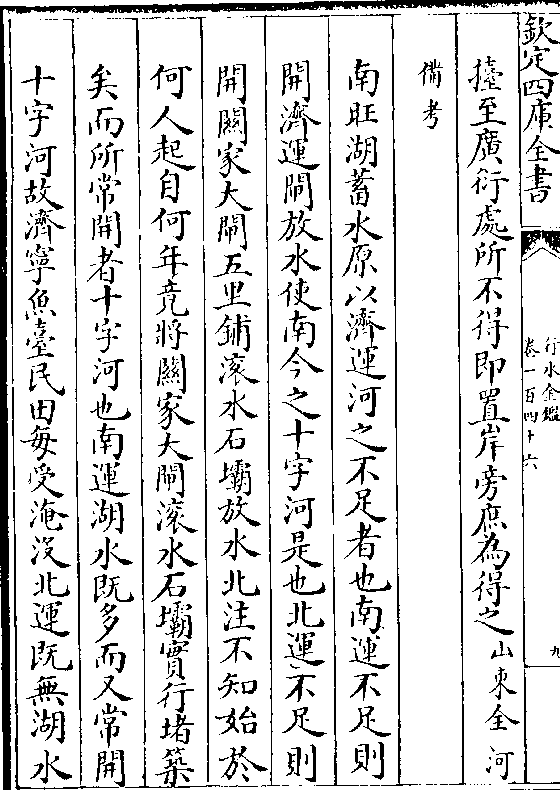 欽定四庫全書
行水金鑑
卷一百四十六
九
擡至廣衍處所不得即置岸旁庶為得之山東全河
備考
南旺湖蓄水原以濟運河之不足者也南運不足則
開濟運閘放水使南今之十字河是也北運不足則
開闗家大閘五里鋪滚水石壩放水北注不知始於
何人起自何年竟將闗家大閘滚水石壩實行堵築
矣而所常開者十字河也南運湖水既多而又常開
十字河故濟寧魚臺民田每受淹没北運既無湖水